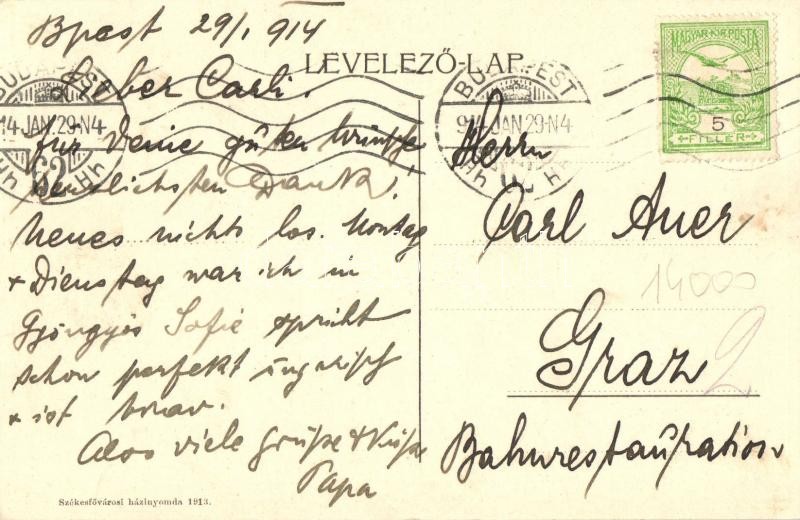 Bpest 29/1 914
LEVELEZŐ-LAP
Lieber Carli.
für Deine guten Wünsche
herzlichsten Dank.
Neues nichts los. Montag
+ Dienstag war ich in
Gyöngyös Sofie spricht
schon perfekt ungarisch
+ ist brav.
Also viele Grüsse + Küsse
Papa
Székesfővárosi házinyomda 1913.
MAGYAR KIR. POSTA
5
FILLÉR
BUDAPEST
914 JAN 29 N4
BUDAPEST
14 JAN 29 N4
62
Herrn
Carl Auer
14000
Graz
2
Bahnrestauration